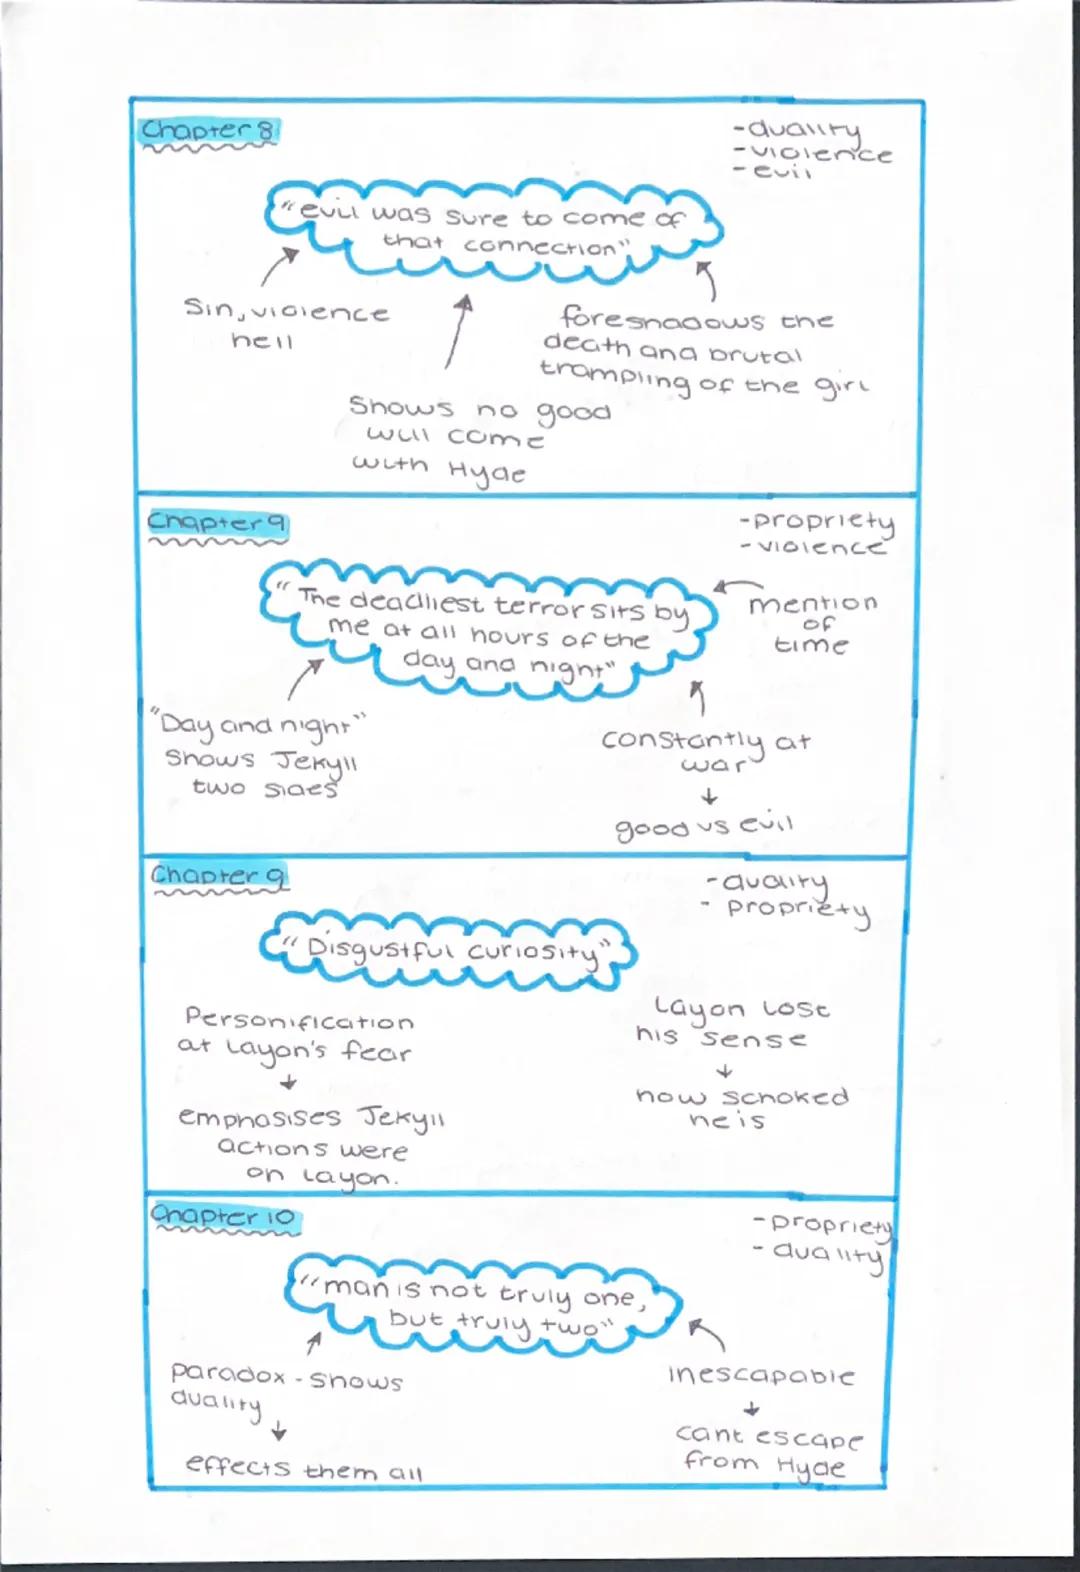 Chapter 8
-duality
-violence
-evil
"evil was sure to come of
that connection"
Sin, violence
hell
foreshadows the
death and brutal
trampling of the girl
Shows no good
will come
with Hyde
Chapter 9
-propriety
-violence
"The deadliest terror sits by
me at all hours of the
day and night"
mention
of
time
"Day and night"
shows Jekyll
two sides
constantly at
war
↓
good vs evil
Chapter 9
-duality
- propriety
"Disgustful curiosity"
Personification
at Layon's fear
↓
emphasises Jekyll
actions were
on Layon.
Layon lost
his sense
↓
now schoked
he is
Chapter 10
-propriety
- duality
"man is not truly one,
but truly two"
paradox - shows
duality
↓
effects them all
inescapable
↓
cant escape
from Hyde